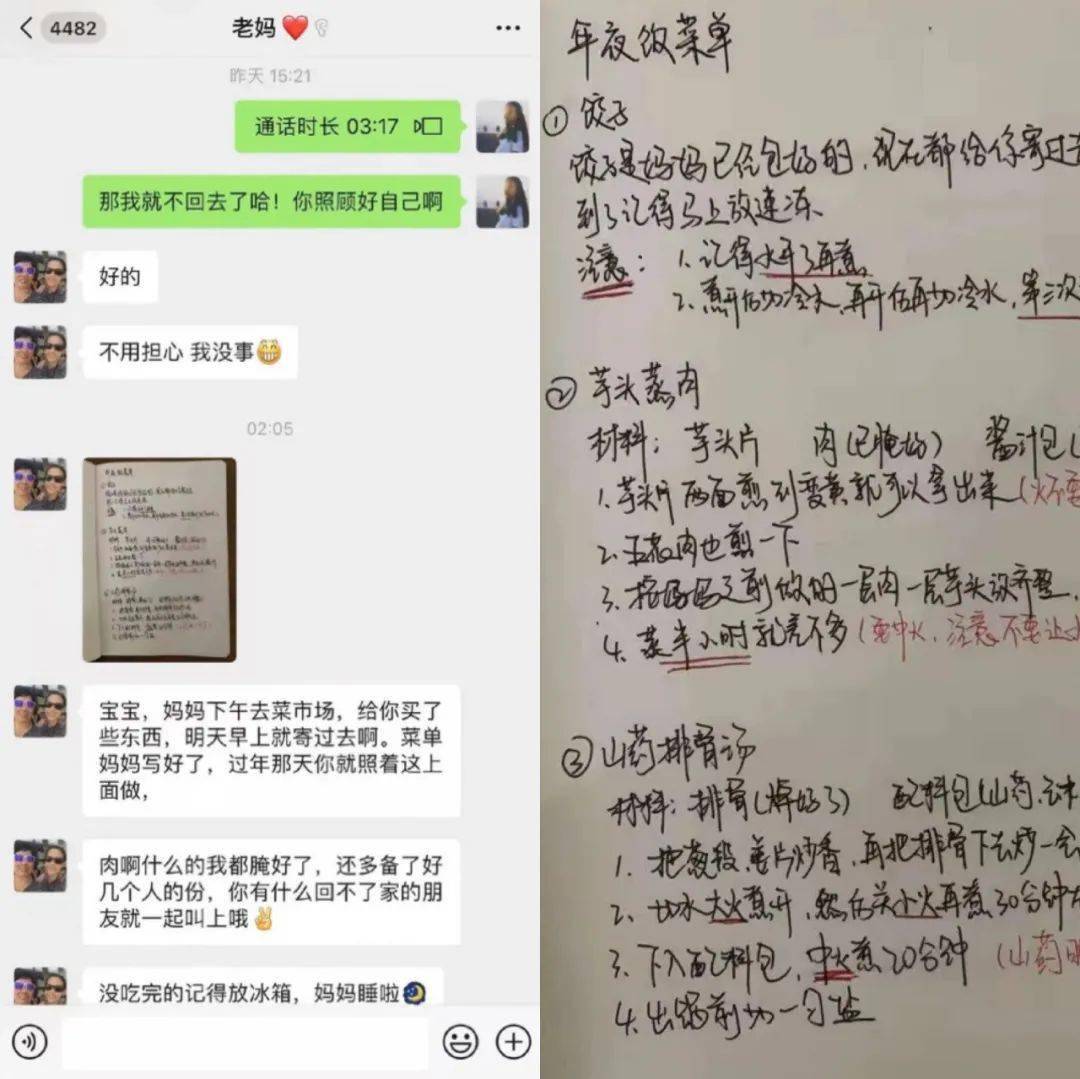 4482
老妈❤️
昨天 15:21
通话时长 03:17
那我就不回去了哈！你照顾好自己啊
好的
不用担心 我没事😁
02:05
宝宝，妈妈下午去菜市场，给你买了
些东西，明天早上就寄过去啊。菜单
妈妈写好了，过年那天你就照着这上
面做，
肉啊什么的我都腌好了，还多备了好
几个人的份，你有什么回不了家的朋
友就一起叫上哦✌️
没吃完的记得放冰箱，妈妈睡啦🌙
年夜饭菜单
① 饺子
饺子是妈妈已经包好的，现在都给你寄过去
到了记得马上放速冻、
注意： 1、记得水开了再煮
2、煮开后加冷水，再开后再加冷水，第三次
② 芋头蒸肉
材料： 芋头片 肉（已腌好） 酱汁包（
1、芋头片两面煎到变黄就可以拿出来（火不要
2、五花肉也煎一下
3、按妈妈之前做的一层肉一层芋头放齐整，
4、蒸半小时就差不多（要中火，注意不要让水
③ 山药排骨汤
材料：排骨（焯好了） 配料包（山药、玉米
1、把葱段、姜片炒香，再把排骨下去炒一会
2、加水大火煮开，然后关小火再煮30分钟左
3、下入配料包，中火煮20分钟 （山药
4、出锅前加一勺盐